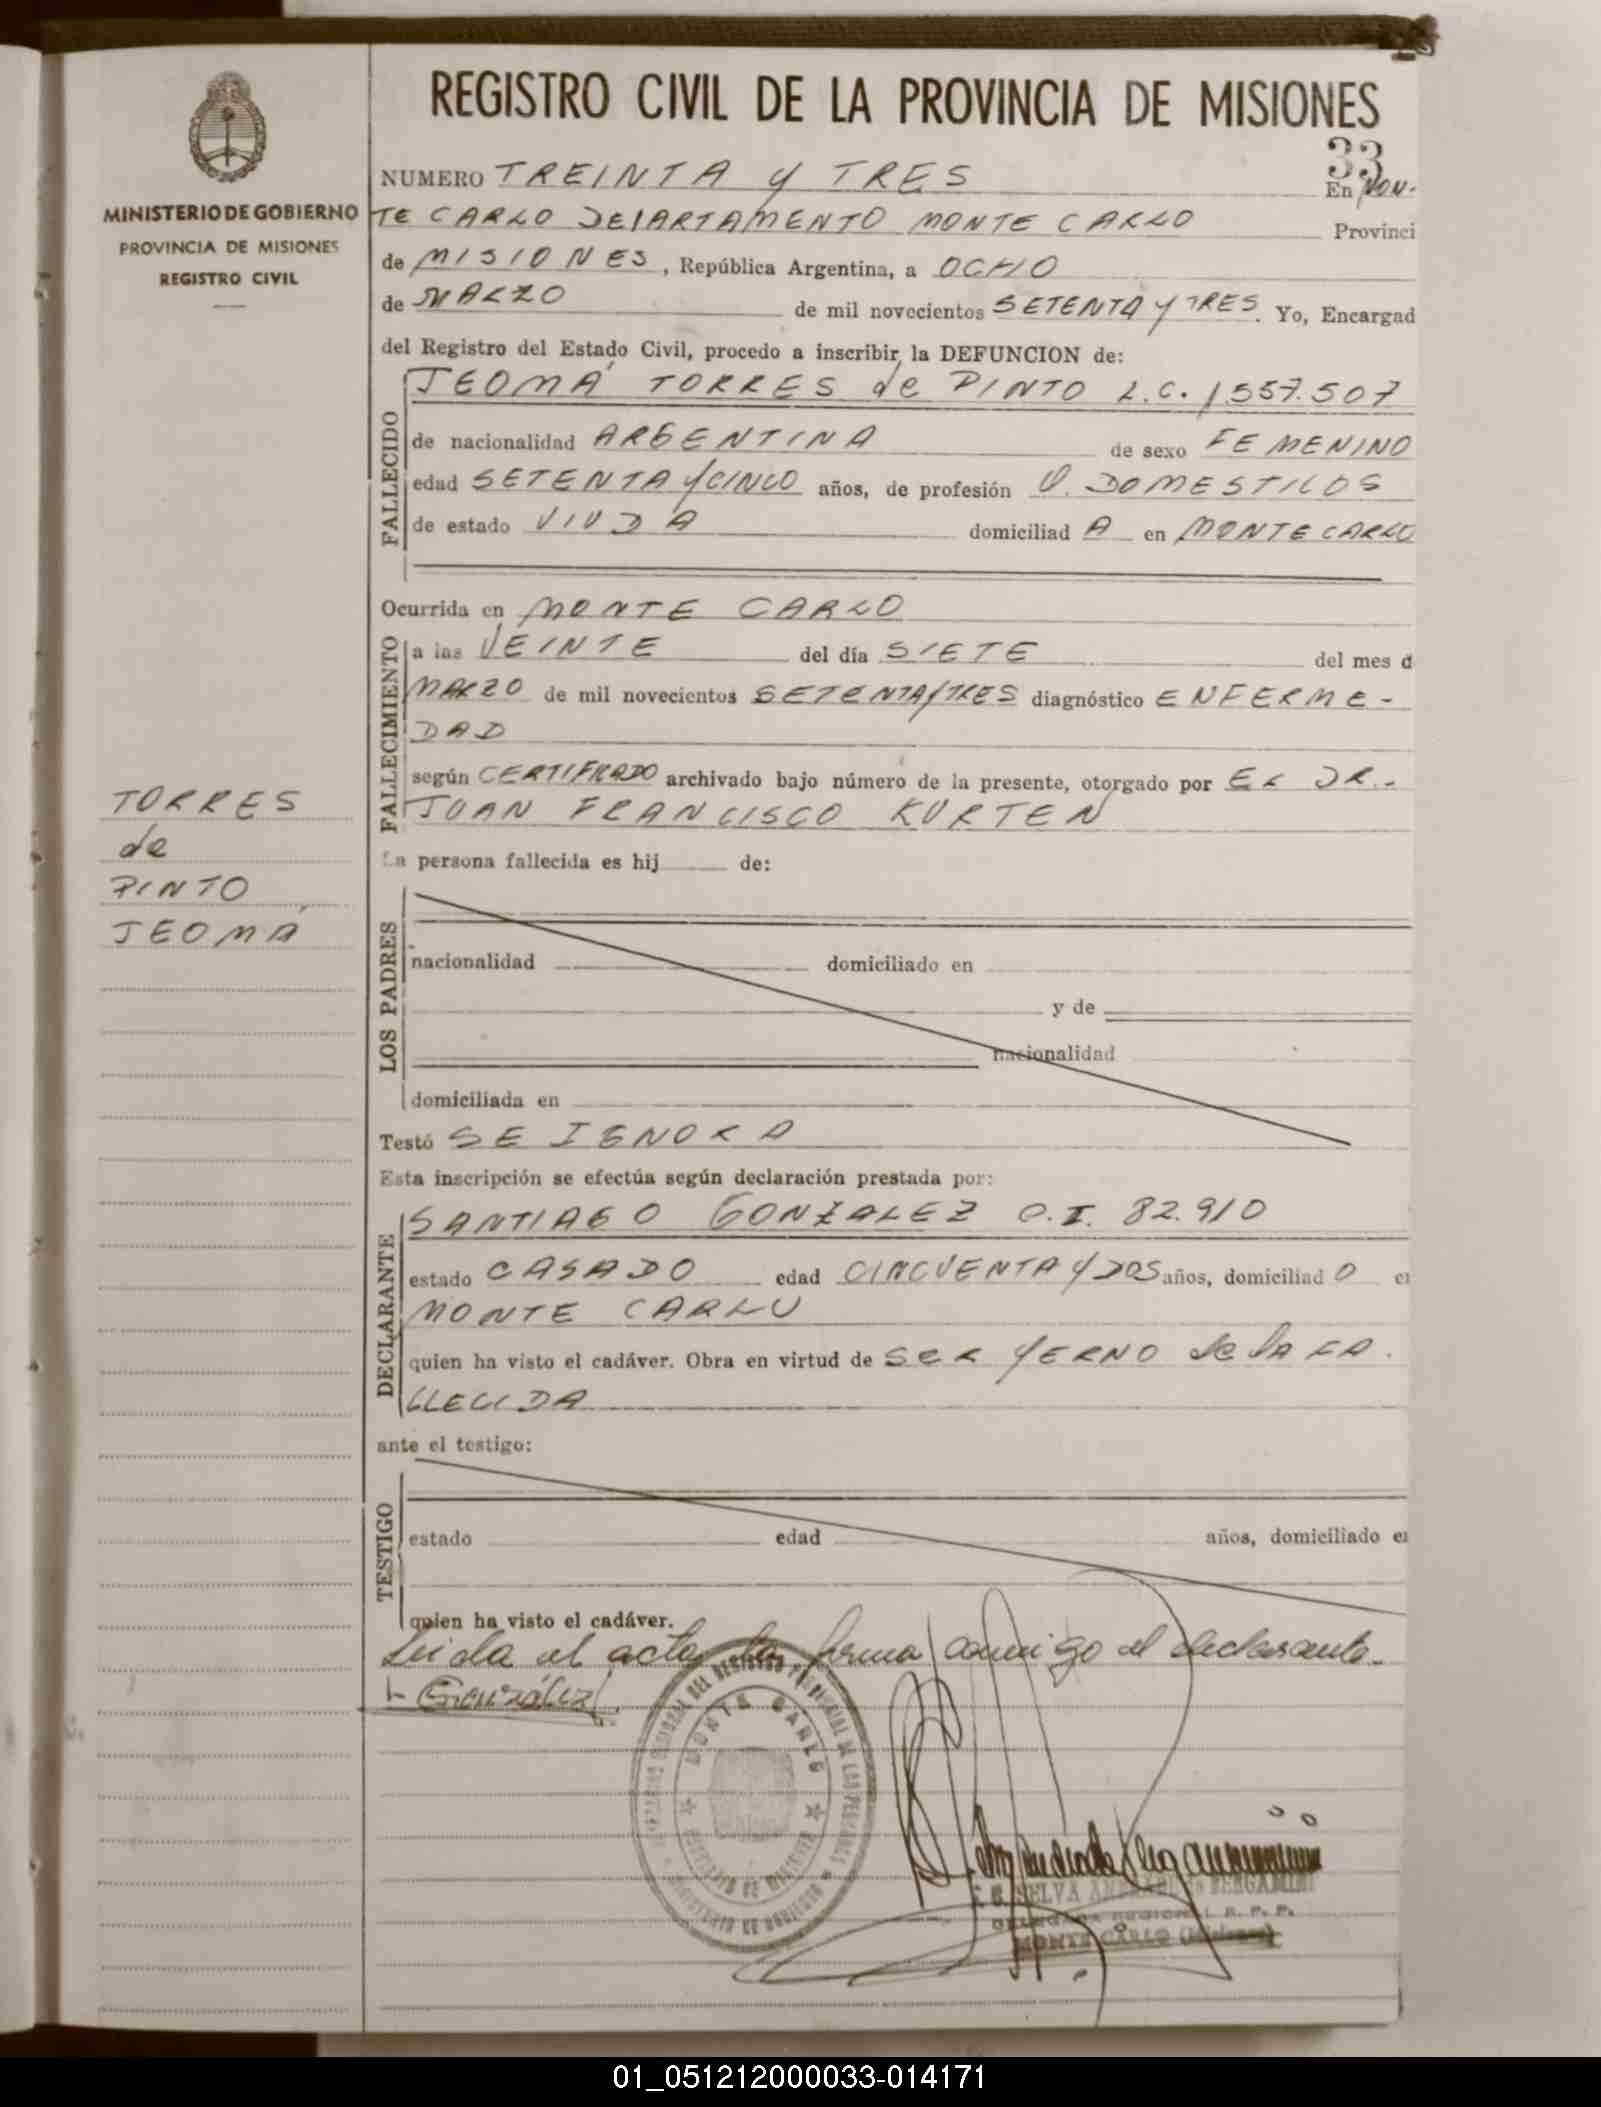 REGISTRO CIVIL DE LA PROVINCIA DE MISIONES
MINISTERIO DE GOBIERNO
PROVINCIA DE MISIONES
REGISTRO CIVIL
33
NUMERO TREINTA Y TRES En MON-
TE CARLO DEPARTAMENTO MONTE CARLO Provinci
de MISIONES, República Argentina, a OCHO
de MARZO de mil novecientos SETENTA Y TRES. Yo, Encargad
del Registro del Estado Civil, procedo a inscribir la DEFUNCION de:
JEOMÁ TORRES de PINTO L.C. 1557.507
FALLECIDO
de nacionalidad ARGENTINA de sexo FEMENINO
edad SETENTA Y CINCO años, de profesión Q. DOMESTICOS
de estado VIUDA domiciliad A en MONTE CARLO
Ocurrida en MONTE CARLO
FALLECIMIENTO
a las VEINTE del día SIETE del mes d
MARZO de mil novecientos SETENTA Y TRES diagnóstico ENFERME-
DAD
según CERTIFICADO archivado bajo número de la presente, otorgado por EL DR.-
JUAN FRANCISCO KURTEN
TORRES
de
PINTO
JEOMÁ
La persona fallecida es hij de:
LOS PADRES
nacionalidad domiciliado en
y de
nacionalidad
domiciliada en
Testó SE IGNORA
Esta inscripción se efectúa según declaración prestada por:
SANTIAGO GONZALEZ C.I. 82.910
DECLARANTE
estado CASADO edad CINCUENTA Y DOS años, domiciliad O e
MONTE CARLO
quien ha visto el cadáver. Obra en virtud de SER YERNO de la FA.
LLECIDA
ante el testigo:
TESTIGO
estado edad años, domiciliado e
quien ha visto el cadáver.
Leida el acta la firma conmigo el declarante.-
González
MONTE CARLO
SELVA BERGAMINI
DELEGADA REGIONAL R. P. P.
MONTE CARLO (Misiones)
01_051212000033-014171